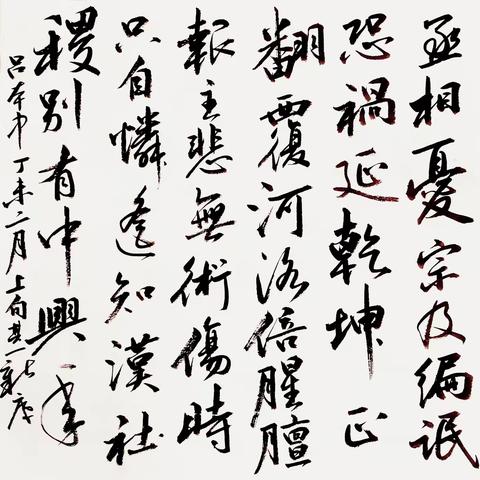 丞相憂宗及編氓
恐禍延乾坤正
翻覆河洛倍腥膻
報主悲無術傷時
只自憐遙知漢社
稷別有中興年
吕本中丁未二月上旬其一